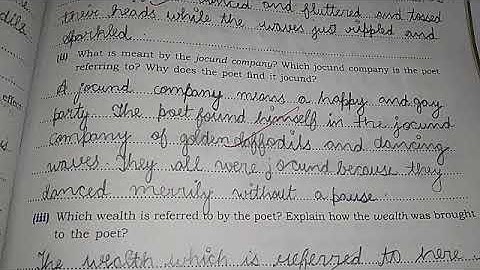 danced and fluttered and tossed
their heads while the waves just rippled and
sparkled.
(ii) What is meant by the jocund company? Which jocund company is the poet
referring to? Why does the poet find it jocund?
A jocund company means a happy and gay
party. The poet found himself in the jocund
company of golden daffodils and dancing
waves. They all were jocund because they
danced merrily without a pause.
effect
(iii) Which wealth is referred to by the poet? Explain how the wealth was brought
to the poet?
The wealth which is referred to here